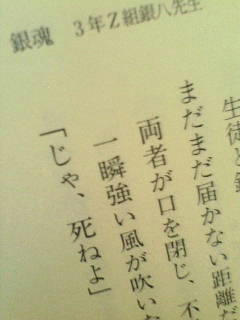 銀魂 3年Z組銀八先生
生徒と
まだまだ届かない距離だ
両者が口を閉じ、不
一瞬強い風が吹いた
「じゃ、死ねよ」